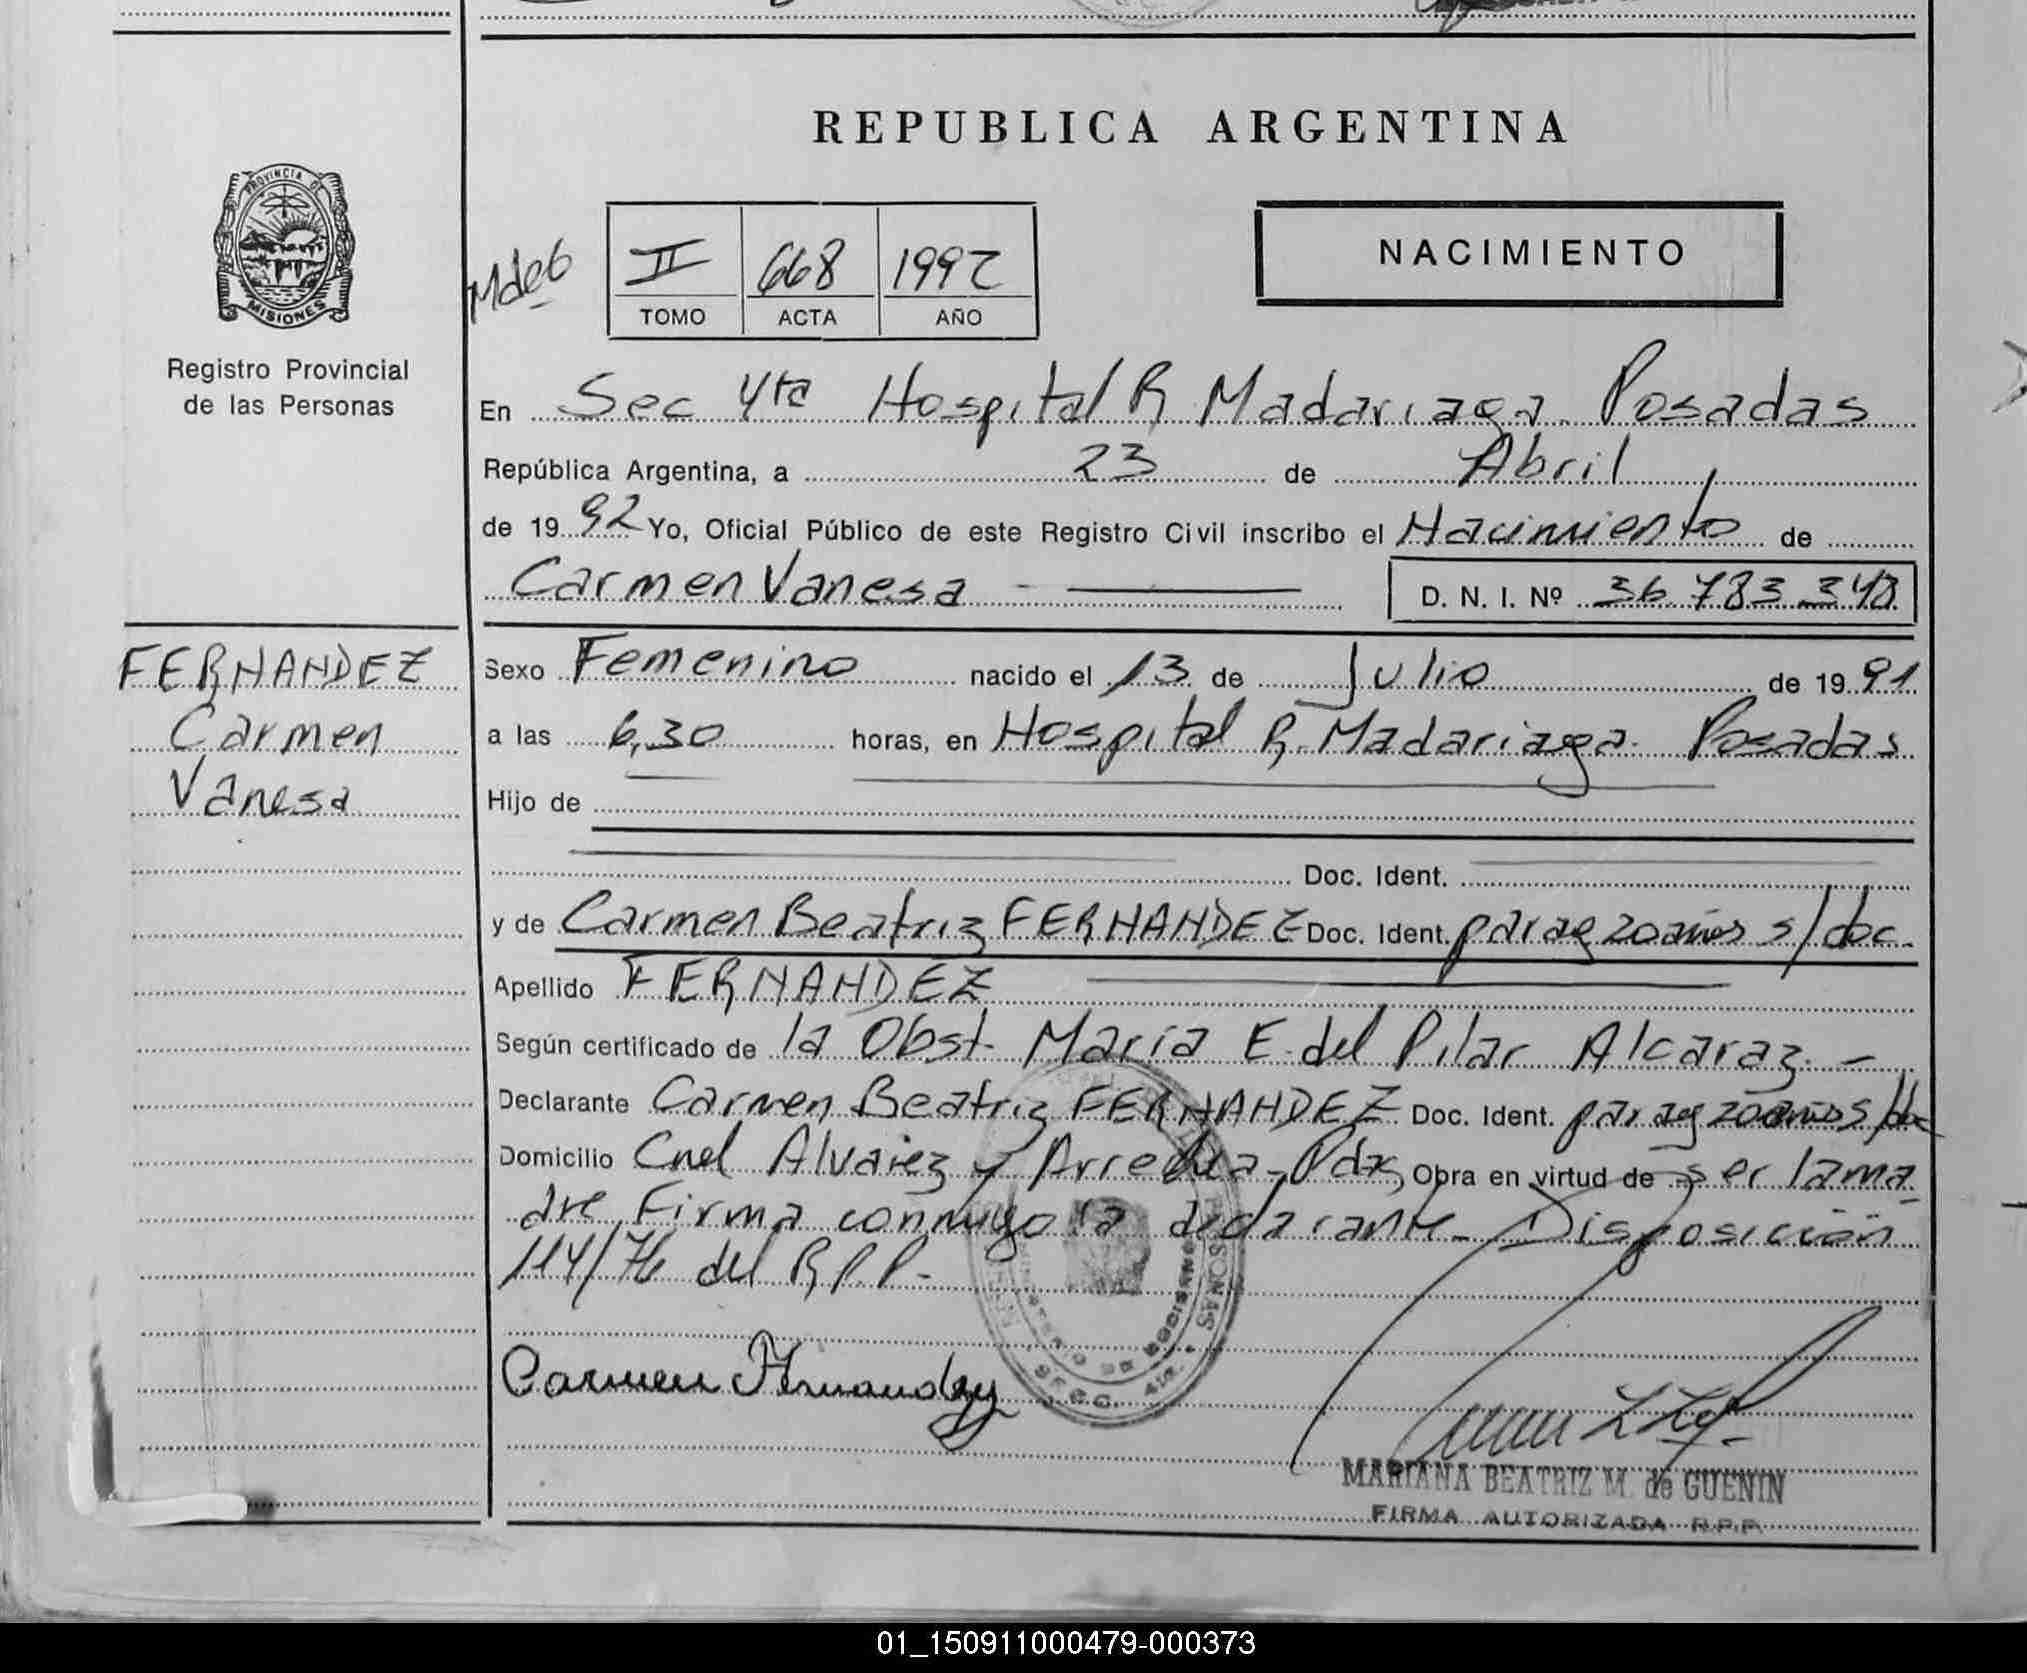 REPUBLICA ARGENTINA
PROVINCIA DE
MISIONES
Registro Provincial
de las Personas
NACIMIENTO
II 668 1992
TOMO ACTA AÑO
En Sec 4ta Hospital R Madariaga Posadas
República Argentina, a 23 de Abril
de 1992 Yo, Oficial Público de este Registro Civil inscribo el Nacimiento de
Carmen Vanesa D. N. I. Nº 36.783.348
FERNANDEZ
Carmen
Vanesa
Sexo Femenino nacido el 13 de Julio de 1991
a las 6,30 horas, en Hospital R. Madariaga. Posadas
Hijo de
Doc. Ident.
y de Carmen Beatriz FERNANDEZ Doc. Ident. parag 20 años s/doc.
Apellido FERNANDEZ
Según certificado de la Obst. María E. del Pilar Alcaraz. -
Declarante Carmen Beatriz FERNANDEZ Doc. Ident. parag 20 años s/doc
Domicilio Cnel Alvarez y Arrechea - Pdas, Obra en virtud de ser la ma
dre, Firma conmigo la declarante - Disposición
114/76 del R.P.P.-
Carmen Fernandez
MARIANA BEATRIZ M. de GUENIN
FIRMA AUTORIZADA R.P.P.
01_150911000479-000373